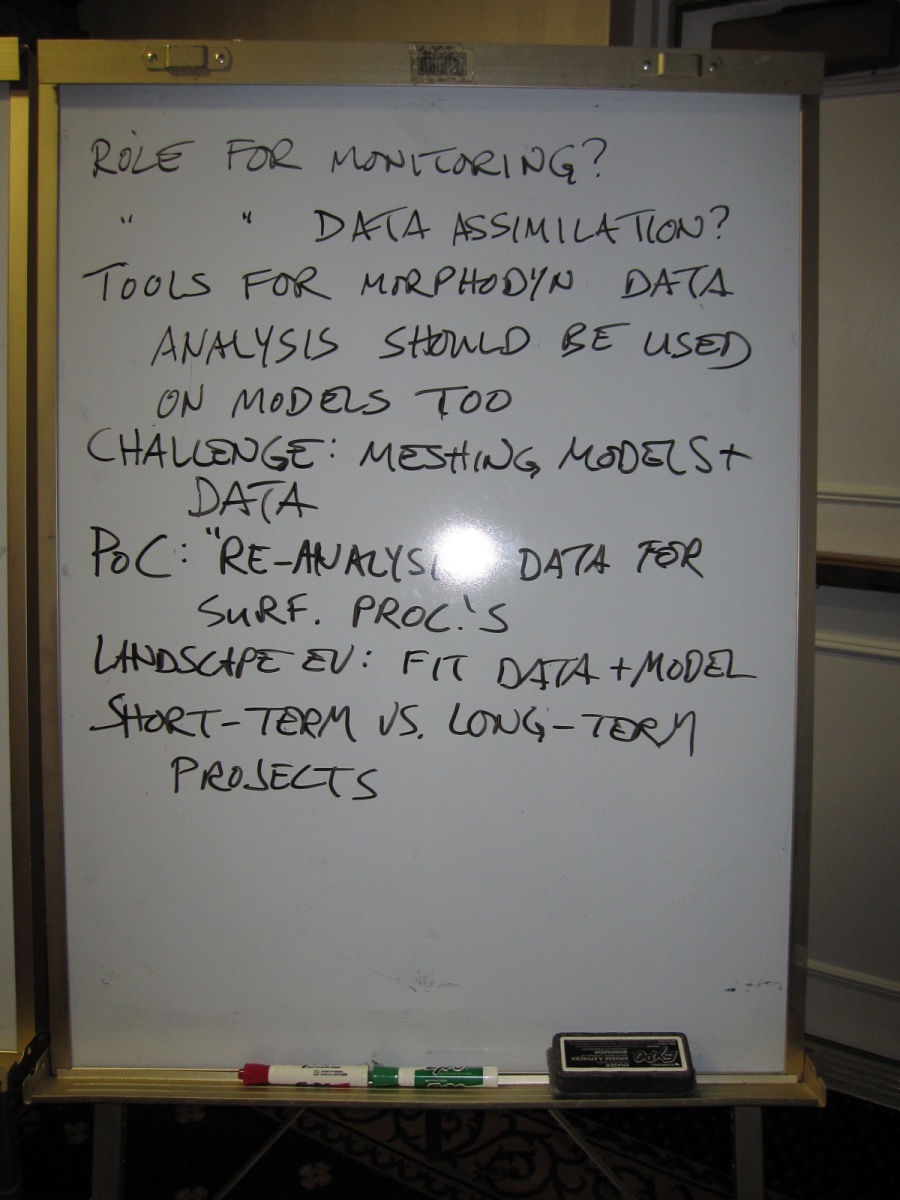 ROLE FOR MONITORING?
" " DATA ASSIMILATION?
TOOLS FOR MORPHODYN DATA
ANALYSIS SHOULD BE USED
ON MODELS TOO
CHALLENGE: MESHING MODELS +
DATA
POC: "RE-ANALYSI DATA FOR
SURF. PROC.'S
LANDSCAPE EV: FIT DATA + MODEL
SHORT-TERM VS. LONG-TERM
PROJECTS
EXPO
ERASER
BORRADOR